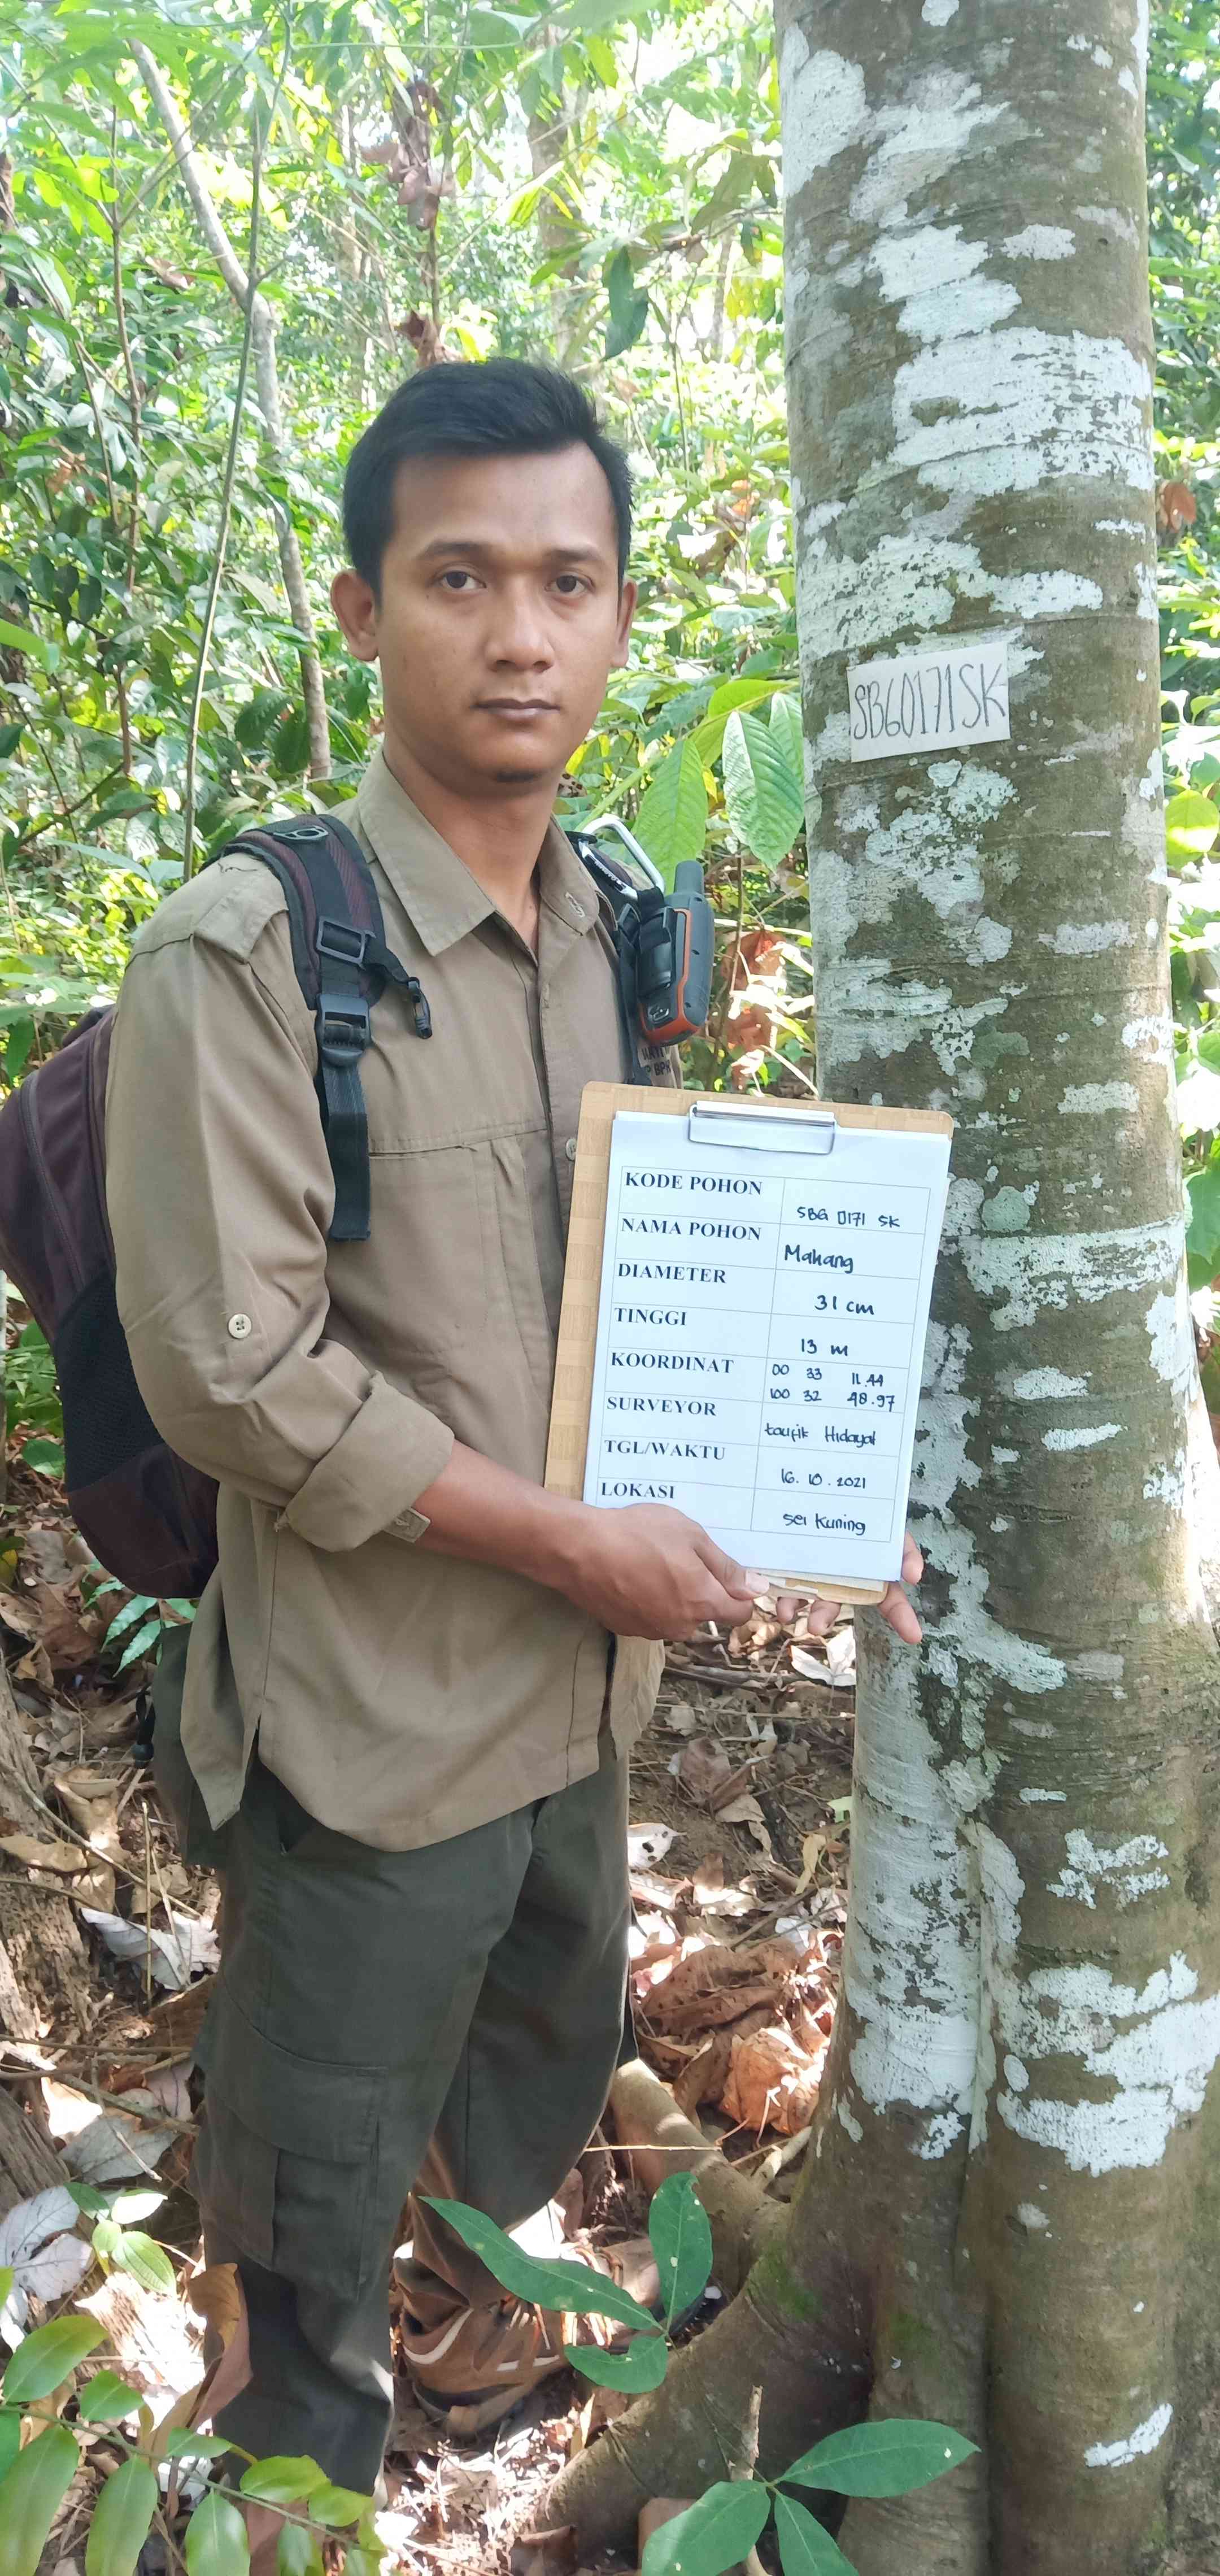 SBG0171SK
KODE POHON SBG 0171 SK
NAMA POHON Mahang
DIAMETER 31 cm
TINGGI 13 m
KOORDINAT 00 33 11.44
100 32 48.97
SURVEYOR taufik Hidayat
TGL/WAKTU 16.10.2021
LOKASI sei Kuning